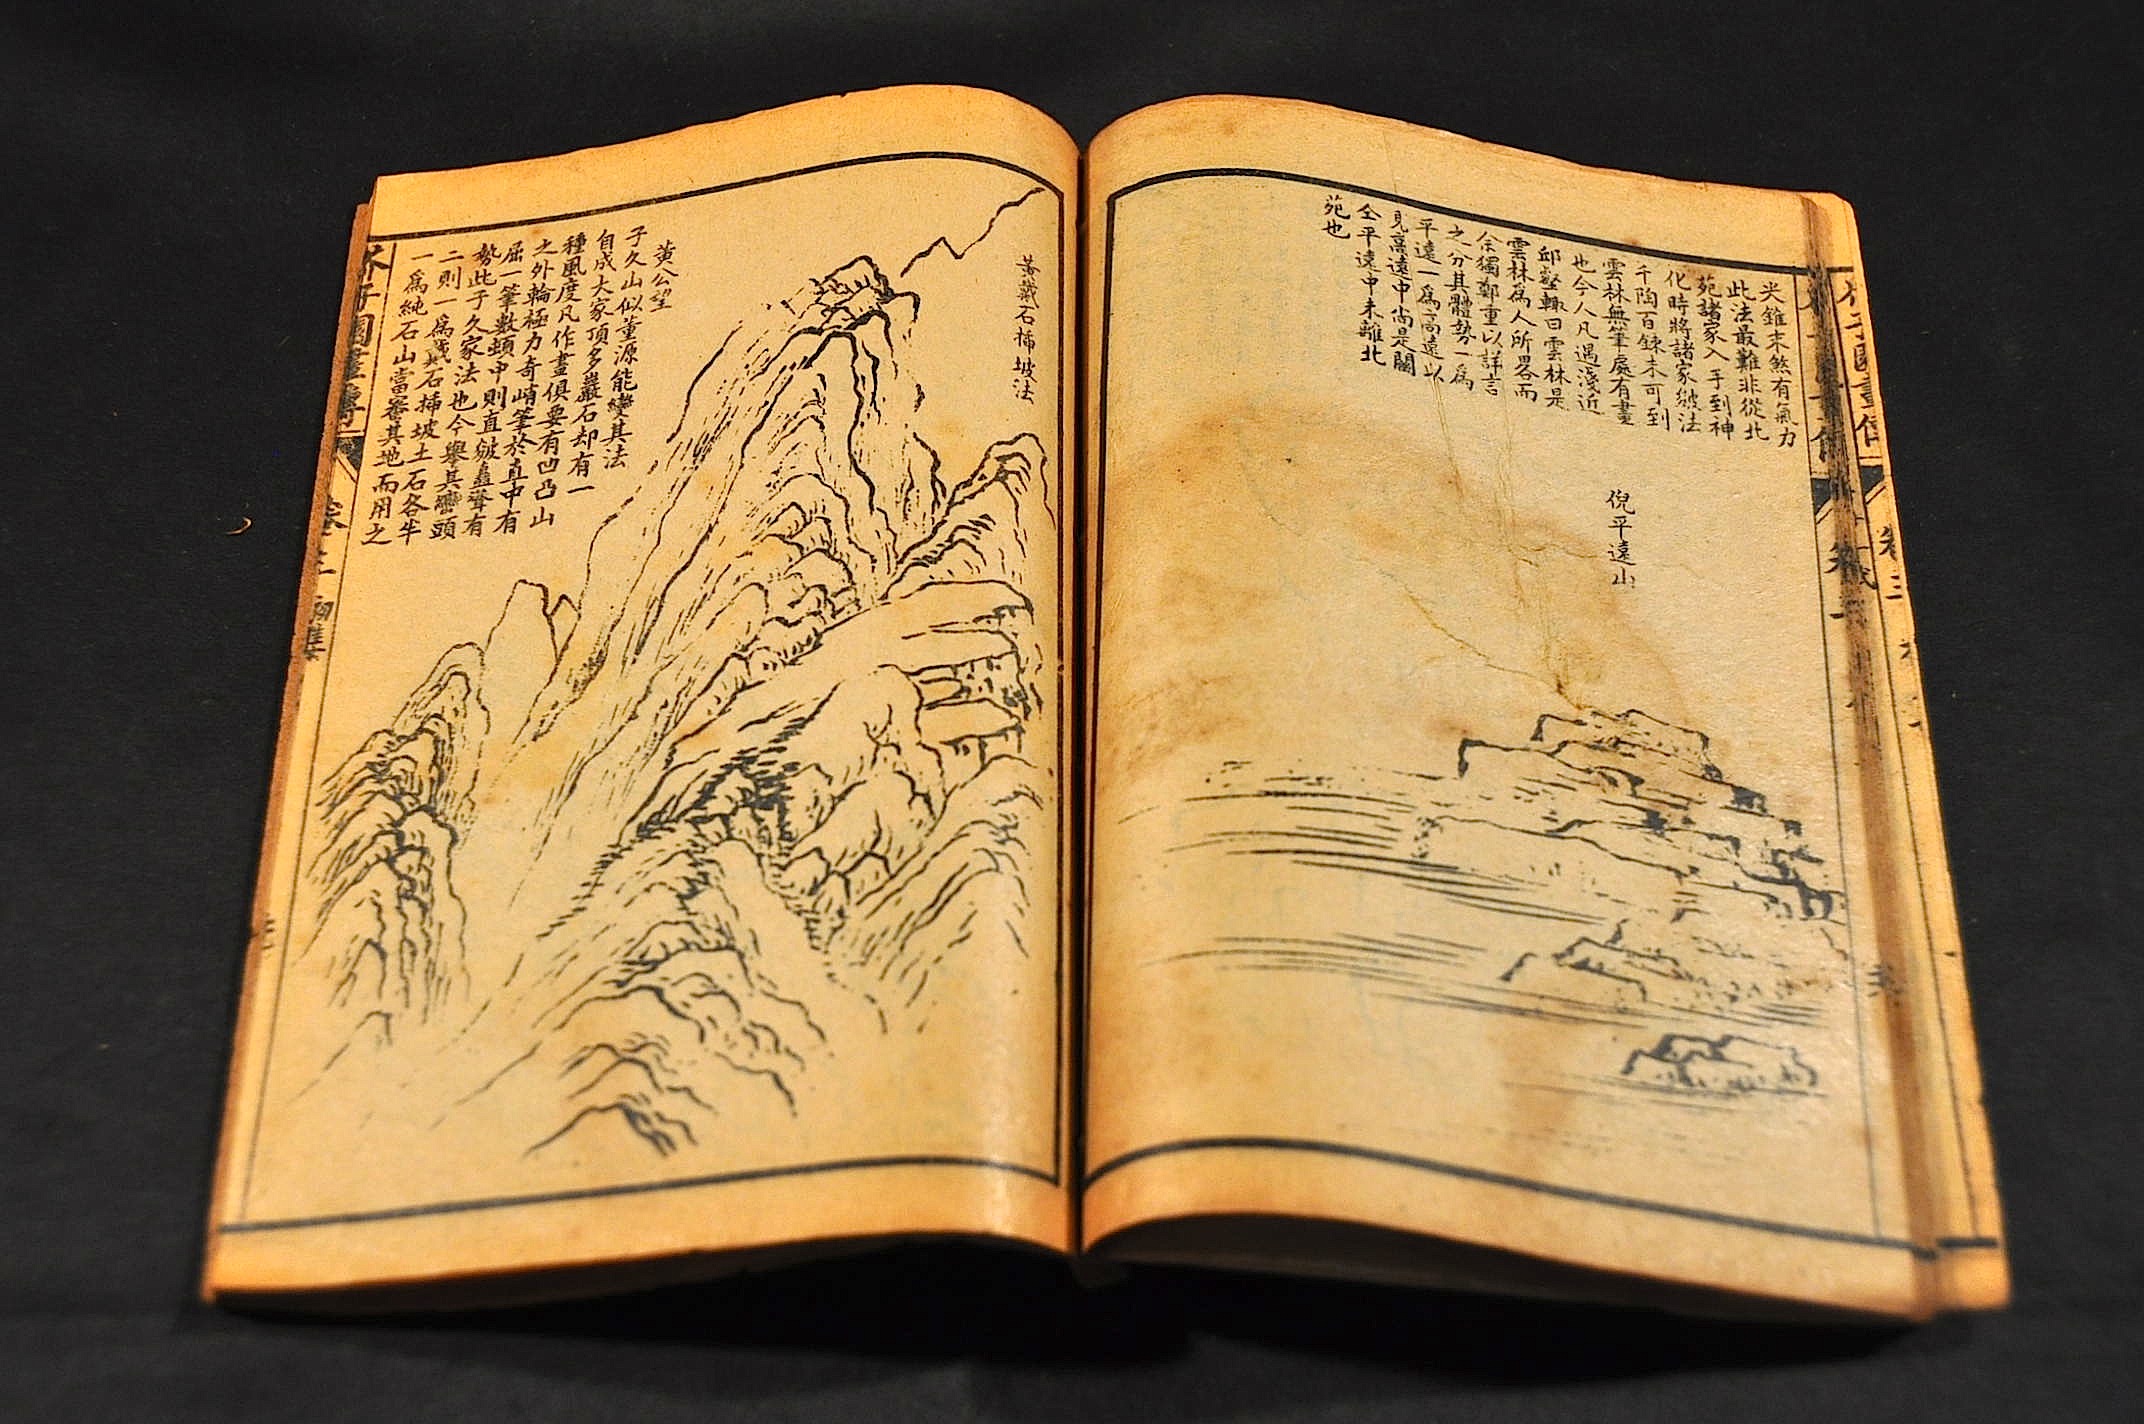 尖錐來然有氣力
此法最難非從北
苑諸家入手到神
化時將諸家皴法
千陶百鍊未可到
雲林無筆處有畫
也今人凡遇淺近
邱壑輒曰雲林是
雲林爲人所畧而
余獨鄭重以詳言
之分其體勢一爲
平遠一爲高遠以
見高遠中尚是關
仝平遠中未離北
苑也
倪平遠山
石插坡法
黄公望
子久山似董源能變其法
自成大家頂多巖石却有一
種風度凡作畫俱要有凹凸山
之外輪極力奇峭筆於直中有
屈一筆數頓中則直皴矗聳有
勢此子久家法也今舉其巒頭
二則一爲戴石插坡土石各半
一爲純石山當審其地而用之
芥子園畫傳
卷三